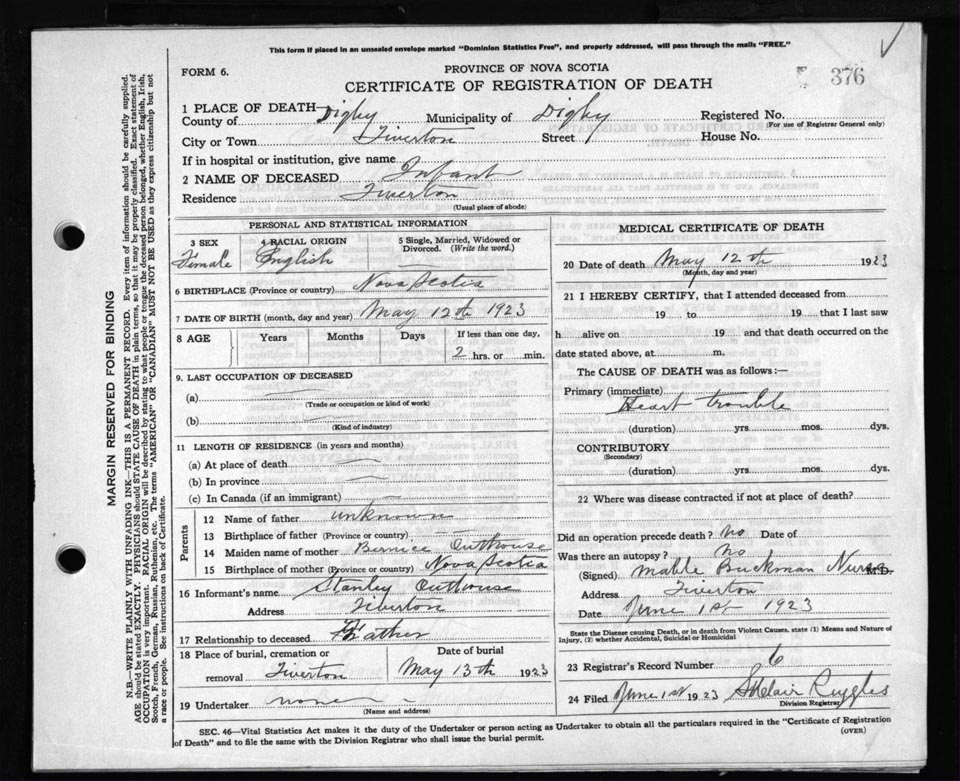 This form if placed in an unsealed envelope marked "Dominion Statistics Free", and properly addressed, will pass through the mails "FREE."
FORM 6.
PROVINCE OF NOVA SCOTIA
376
CERTIFICATE OF REGISTRATION OF DEATH
1 PLACE OF DEATH
County of Digby Municipality of Digby Registered No.
(For use of Registrar General only)
City or Town Tiverton Street House No.
If in hospital or institution, give name
2 NAME OF DECEASED Infant
Residence Tiverton
(Usual place of abode)
PERSONAL AND STATISTICAL INFORMATION
3 SEX 4 RACIAL ORIGIN 5 Single, Married, Widowed or
Divorced. (Write the word.)
Female English
6 BIRTHPLACE (Province or country) Nova Scotia
7 DATE OF BIRTH (month, day and year) May 12th 1923
8 AGE Years Months Days If less than one day,
2 hrs. or min.
9. LAST OCCUPATION OF DECEASED
(a)
(Trade or occupation or kind of work)
(b)
(Kind of industry)
11 LENGTH OF RESIDENCE (in years and months)
(a) At place of death
(b) In province
(c) In Canada (if an immigrant)
Parents
12 Name of father unknown
13 Birthplace of father (Province or country)
14 Maiden name of mother Bernice Outhouse
15 Birthplace of mother (Province or country) Nova Scotia
16 Informant's name Stanley Outhouse
Address Tiverton
17 Relationship to deceased Father
18 Place of burial, cremation or Date of burial
removal Tiverton May 13th 1923
19 Undertaker none
(Name and address)
MEDICAL CERTIFICATE OF DEATH
20 Date of death May 12th 1923
(Month, day and year)
21 I HEREBY CERTIFY, that I attended deceased from
19 to 19 that I last saw
h alive on 19 and that death occurred on the
date stated above, at m.
The CAUSE OF DEATH was as follows:—
Primary (immediate)
Heart trouble
(duration) yrs. mos. dys.
CONTRIBUTORY
(Secondary)
(duration) yrs. mos. dys.
22 Where was disease contracted if not at place of death?
Did an operation precede death? No Date of
Was there an autopsy? No
(Signed) Mable Buckman Nurse M.D.
Tiverton
Date June 1st 1923
State the Disease causing Death, or in death from Violent Causes, state (1) Means and Nature of
Injury, (2) whether Accidental, Suicidal or Homicidal
23 Registrar's Record Number 6
24 Filed June 1st 1923 Ruggles
Division Registrar
SEC. 46—Vital Statistics Act makes it the duty of the Undertaker or person acting as Undertaker to obtain all the particulars required in the "Certificate of Registration
of Death" and to file the same with the Division Registrar who shall issue the burial permit.
(OVER)
MARGIN RESERVED FOR BINDING
N.B.—WRITE PLAINLY WITH UNFADING INK—THIS IS A PERMANENT RECORD. Every item of information should be carefully supplied.
AGE should be stated EXACTLY. PHYSICIANS should STATE CAUSE OF DEATH in plain terms, so that it may be properly classified. Exact statement of
OCCUPATION is very important. RACIAL ORIGIN will be described by stating to what people or tongue the deceased person belonged, whether English, Irish,
Scotch, French, German, Russian, Ruthenian, etc. The terms "AMERICAN" OR "CANADIAN" MUST NOT BE USED as they express citizenship but not
a race or people. See instructions on back of Certificate.